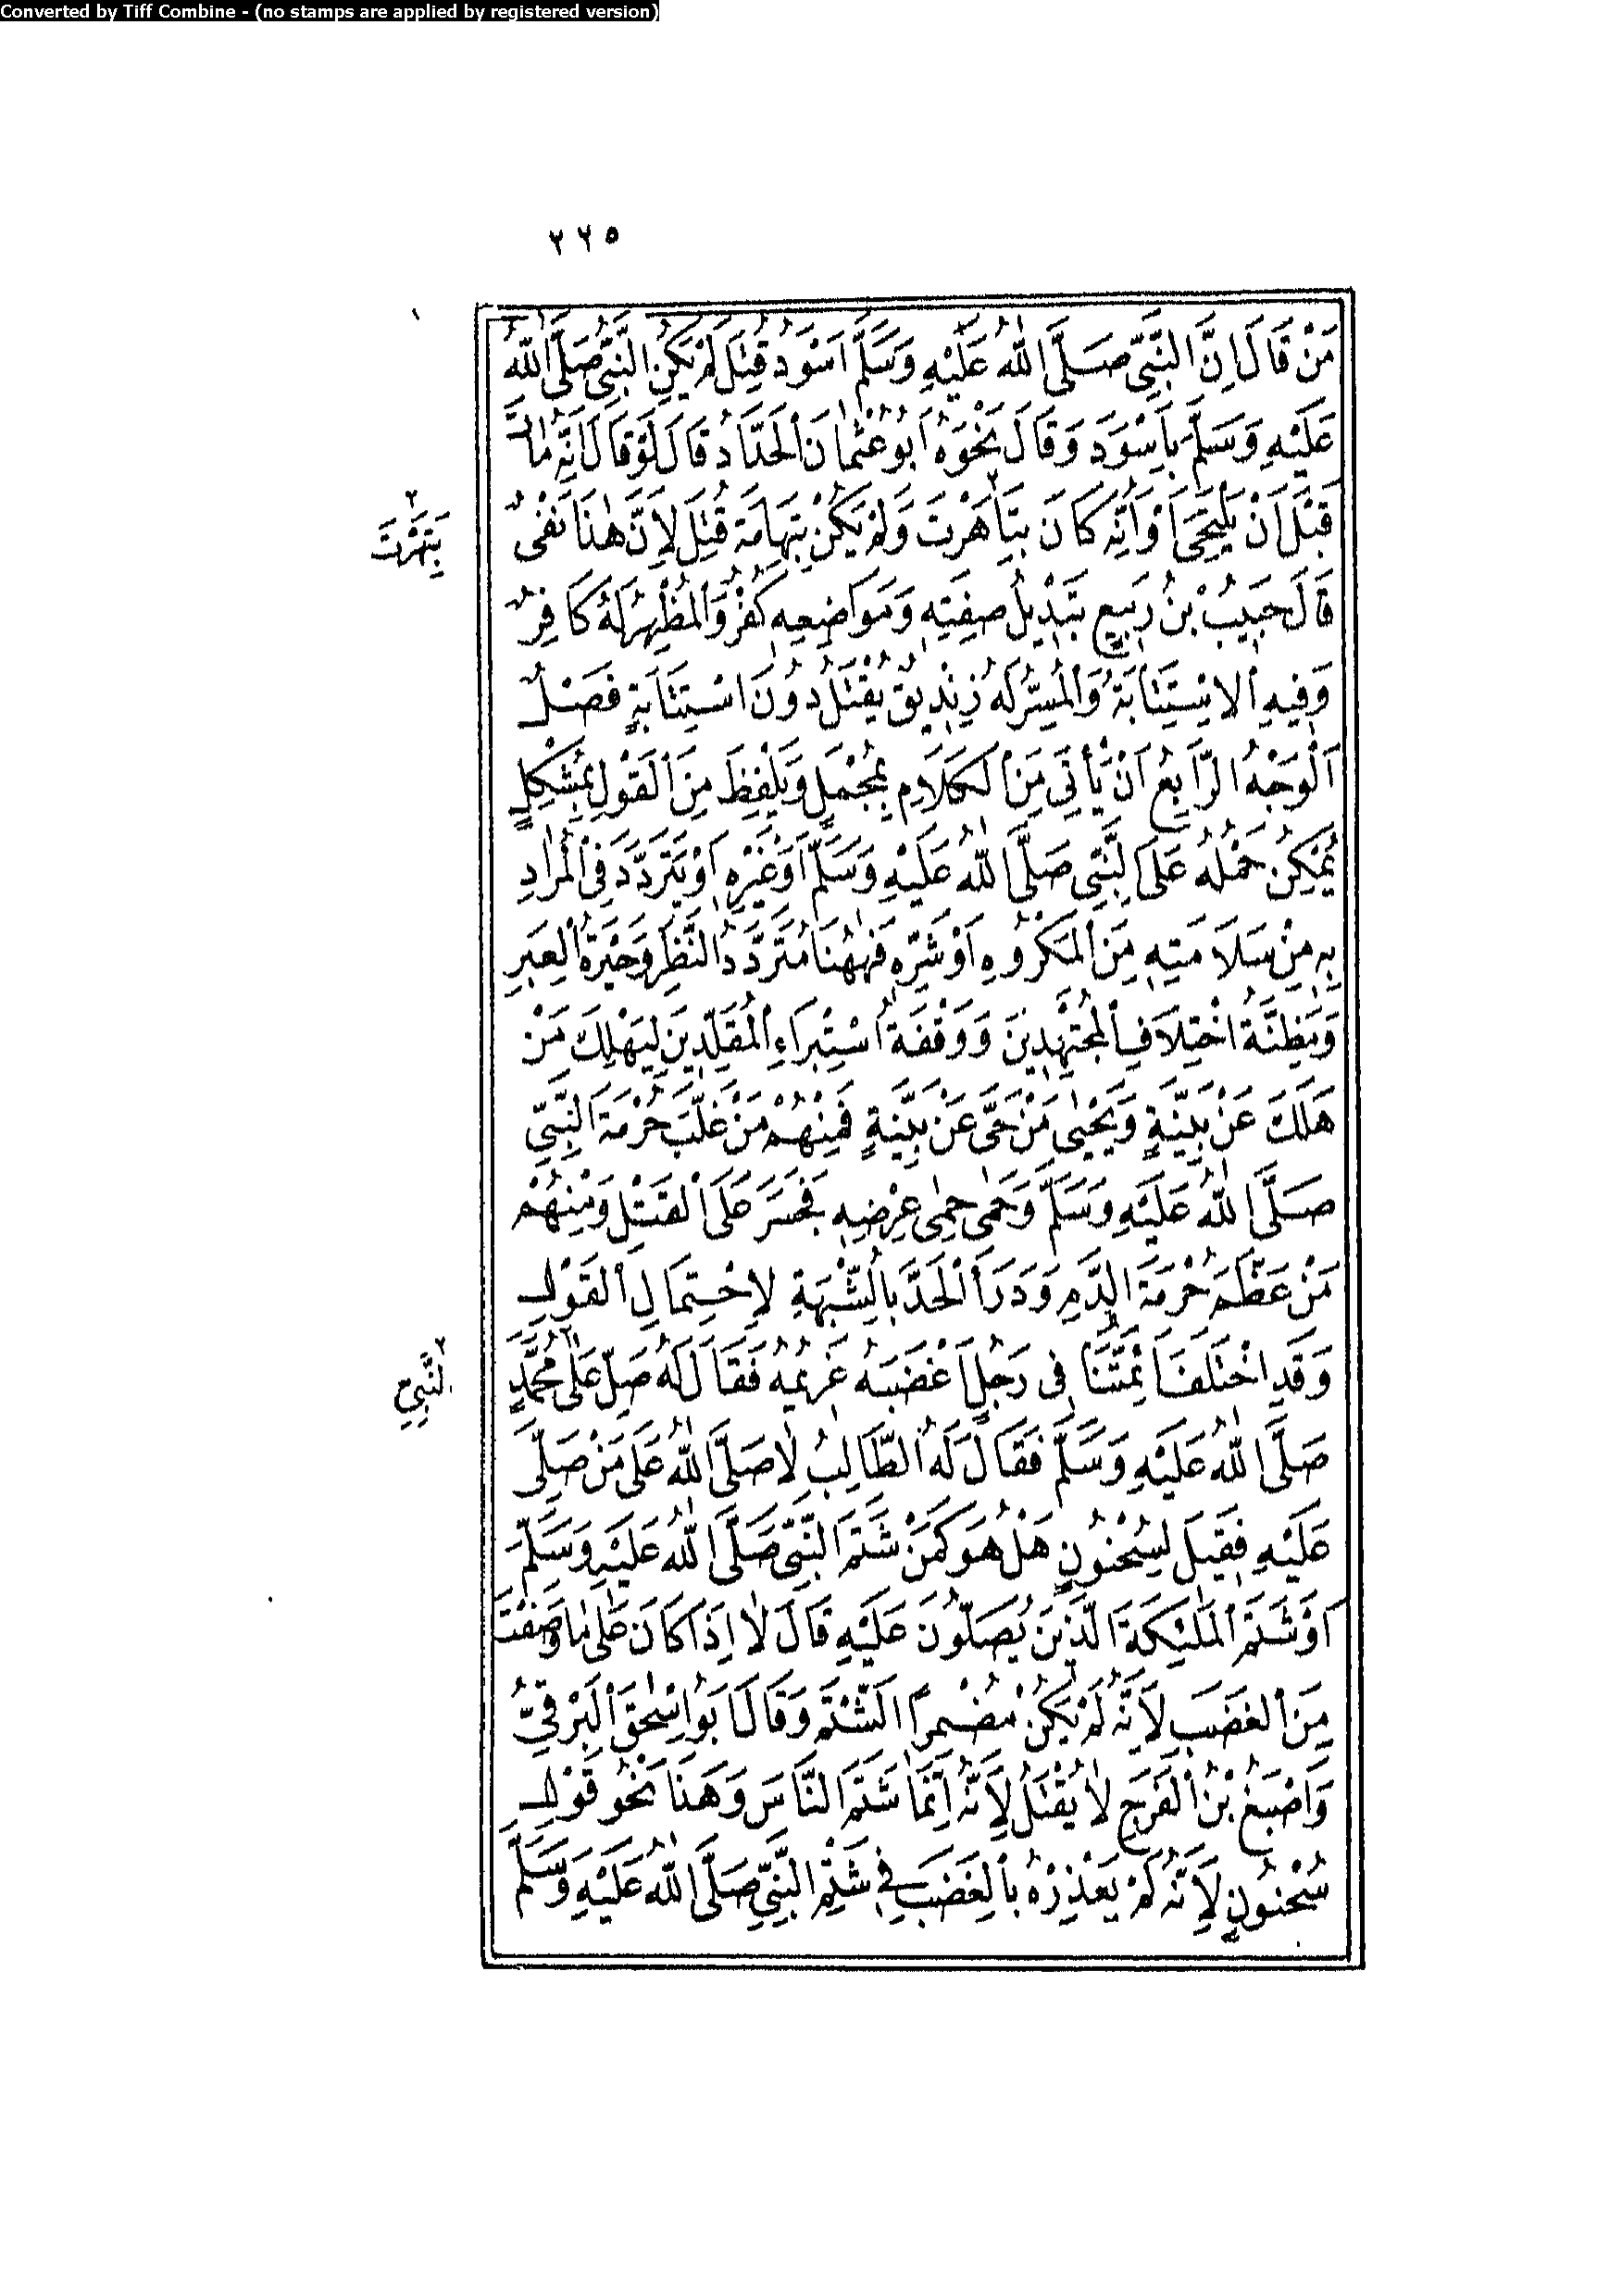 Converted by Tiff Combine - (no stamps are applied by registered version)
٢٢٥
مَنْ قَالَ اِنَّ النَّبِيَّ صَلَّى اللّٰهُ عَلَيْهِ وَسَلَّمَ اَسْوَدُ قُتِلَ لَمْ يَكُنِ النَّبِيُّ صَلَّى اللّٰهُ
عَلَيْهِ وَسَلَّمَ بِاَسْوَدَ وَقَالَ نَحْوَهُ اَبُو عُثْمَانَ الْحَدَّادُ قَالَ لَوْ قَالَ اِنَّهُ مَاتَ
قَبْلَ اَنْ يَلْتَحِيَ اَوْ اَنَّهُ كَانَ بِتَاهَرْتَ وَلَمْ يَكُنْ بِتِهَامَةَ قُتِلَ لِاَنَّ هٰذَا نَفْيٌ
٢
بِتَهَرْتَ
قَالَ حَبِيبُ بْنُ رَبِيعٍ تَبْدِيلُ صِفَتِهِ وَمَوَاضِعِهِ كُفْرٌ وَالْمُظْهِرُ لَهُ كَافِرٌ
وَفِيهِ الْاِسْتِتَابَةُ وَالْمُسِرُّ لَهُ زِنْدِيقٌ يُقْتَلُ دُونَ اسْتِتَابَةٍ فَصْلٌ
اَلْوَجْهُ الرَّابِعُ اَنْ يَأْتِيَ مِنَ الْكَلَامِ بِمُجْمَلٍ وَيَلْفِظَ مِنَ الْقَوْلِ بِمُشْكِلٍ
يُمْكِنُ حَمْلُهُ عَلَى النَّبِيِّ صَلَّى اللّٰهُ عَلَيْهِ وَسَلَّمَ اَوْ غَيْرِهِ اَوْ يَتَرَدَّدَ فِي الْمُرَادِ
بِهِ مِنْ سَلَامَتِهِ مِنَ الْمَكْرُوهِ اَوْ شَرِّهِ فَهٰهُنَا مُتَرَدَّدُ النَّظَرِ وَحَيْرَةُ الْعِبَرِ
وَمَظِنَّةُ اخْتِلَافِ الْمُجْتَهِدِينَ وَوَقْفَةُ اسْتِبْرَاءِ الْمُقَلِّدِينَ لِيَهْلِكَ مَنْ
هَلَكَ عَنْ بَيِّنَةٍ وَيَحْيٰى مَنْ حَيَّ عَنْ بَيِّنَةٍ فَمِنْهُمْ مَنْ غَلَّبَ حُرْمَةَ النَّبِيِّ
صَلَّى اللّٰهُ عَلَيْهِ وَسَلَّمَ وَحَمٰى حِمٰى عِرْضِهِ فَجَسَرَ عَلَى الْقَتْلِ وَمِنْهُمْ
مَنْ عَظَّمَ حُرْمَةَ الدَّمِ وَدَرَأَ الْحَدَّ بِالشُّبْهَةِ لِاحْتِمَالِ الْقَوْلِ
وَقَدِ اخْتَلَفَ اَئِمَّتُنَا فِي رَجُلٍ اَغْضَبَهُ غَرِيمُهُ فَقَالَ لَهُ صَلِّ عَلٰى مُحَمَّدٍ
٢
النَّبِيِّ
صَلَّى اللّٰهُ عَلَيْهِ وَسَلَّمَ فَقَالَ لَهُ الطَّالِبُ لَا صَلَّى اللّٰهُ عَلَى مَنْ صَلَّى
عَلَيْهِ فَقِيلَ لِسُحْنُونٍ هَلْ هُوَ كَمَنْ شَتَمَ النَّبِيَّ صَلَّى اللّٰهُ عَلَيْهِ وَسَلَّمَ
اَوْ شَتَمَ الْمَلٰئِكَةَ الَّذِينَ يُصَلُّونَ عَلَيْهِ قَالَ لَا اِذَا كَانَ عَلٰى مَا وَصَفْتَ
مِنَ الْغَضَبِ لِاَنَّهُ لَمْ يَكُنْ مُضْمِرًا الشَّتْمَ وَقَالَ اَبُو اِسْحٰقَ الْبَرْقِيُّ
وَاَصْبَغُ بْنُ الْفَرَجِ لَا يُقْتَلُ لِاَنَّهُ اِنَّمَا شَتَمَ النَّاسَ وَهٰذَا نَحْوُ قَوْلِ
سُحْنُونٍ لِاَنَّهُ لَمْ يَعْذِرْهُ بِالْغَضَبِ فِي شَتْمِ النَّبِيِّ صَلَّى اللّٰهُ عَلَيْهِ وَسَلَّمَ